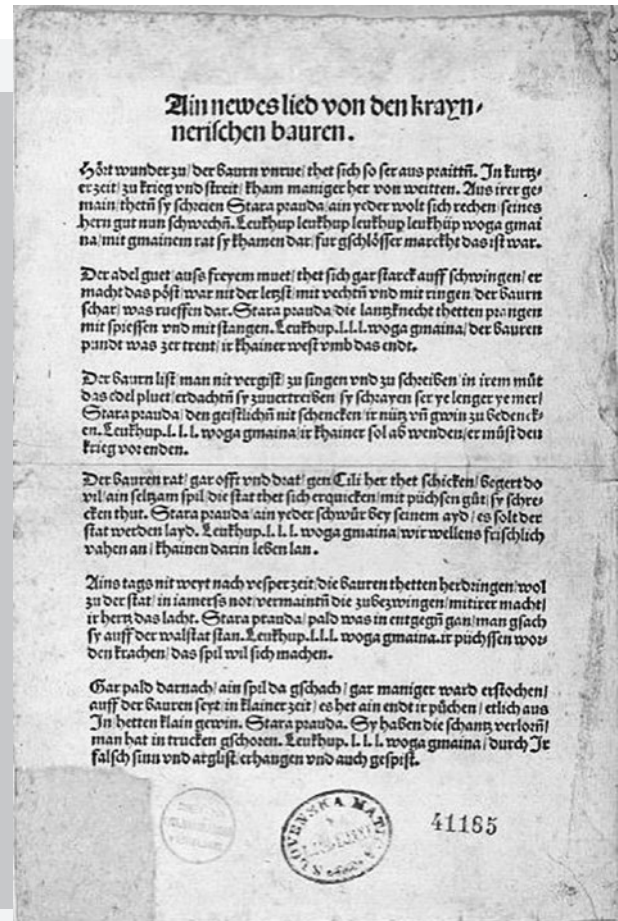 Ain newes lied von den krayn⸗
nerischen bauren.
Hört wunder zu/ der baurn vnrue/ thet sich so ser aus praittñ. In kurtz⸗
er zeit/ zu krieg vnd streit/ kham maniger her von weitten. Aus irer ge⸗
main/ thetñ sy schreien Stara prauda/ ain yeder wolt sich rechen/ seines
hern gut nun schwechñ. Leukhup leukhup leukhup leukhup woga gmai
na/ mit gmainem rat sy khamen dar/ fur gschlösser marckht das ist war.
Der adel guet/ auss freyem muet/ thet sich gar starck auff schwingen/ er
macht das pöst/ war nit der letzst/ mit vechtñ vnd mit ringen/ der baurn
schar/ was rueffen dar. Stara prauda/ die lantzknecht thetten prangen
mit spiessen vnd mit stangen. Leukhup. l. l. l. woga gmaina/ der bauren
pundt was zer trent/ ir khainer west vmb das endt.
Der baurn list/ man nit vergist/ zu singen vnd zu schreiben/ in irem müt
das edel pluet/ erdachtñ sy zuuertreiben/ sy schrayen ser ye lenger ye mer/
Stara prauda/ den geistlichñ nit schencken/ ir nütz vñ gwin zu bedenck⸗
en. Leukhup. l. l. l. woga gmaina/ ir khainer sol ab wenden/ er müst den
krieg vor enden.
Der bauren rat/ gar offt vnd drat/ gen Cili her thet schicken/ begert do
vil/ ain seltzam spil/ die stat thet sich erquicken/ mit püchsen güt/ sy schre⸗
cken thut. Stara prauda/ ain yeder schwür bey seinem ayd/ es solt der
stat werden layd. Leukhup. l. l. l. woga gmaina/ wir wellens frischlich
vahen an/ khainen darin leben lan.
Ains tags nit weyt/ nach vesper zeit/ die bauren thetten herdringen/ wol
zu der stat/ in iamerss not/ vermaintñ die zubezwingen/ mit irer macht/
ir hern das lacht. Stara prauda/ pald was in entgegñ gan/ man gsach
sy auff der walstat stan. Leukhup. l. l. l. woga gmaina. ir püchssen wor⸗
den krachen/ das spil wil sich machen.
Gar pald darnach/ ain spil da gschach/ gar maniger ward erstochen/
auff der bauren seyt/ in klainer zeit/ es het ain endt ir püchen/ etlich aus
In hetten klain gewin. Stara prauda. Sy haben die schantz verlorñ/
man hat in trucken gschoren. Leukhup. l. l. l. woga gmaina/ durch Ir
falsch sinn vnd arglist/ erhangen vnd auch gespist.
SLOVENSKA MATICA
41185